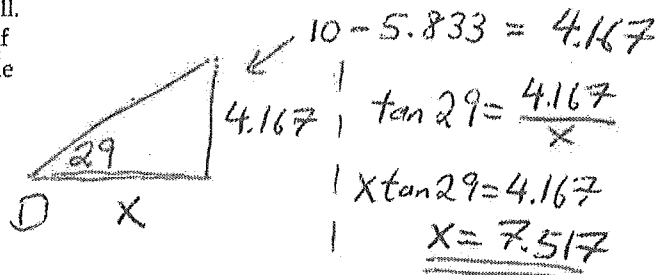 ll.
f
e
10 - 5.833 = 4.167
4.167
tan 29 = 4.167 / x
29
x tan 29 = 4.167
D x
x = 7.517